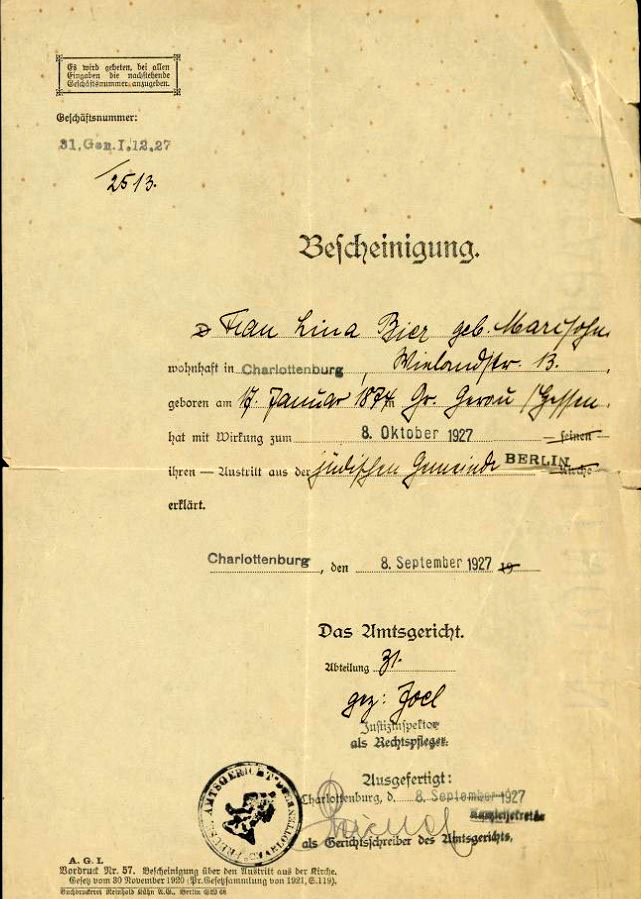 Es wird gebeten, bei allen
Eingaben die nachstehende
Geschäftsnummer anzugeben.
Geschäftsnummer:
31.Gen.I.12.27
/2513.
Bescheinigung.
Frau Lina Bier geb. Marxsohn
wohnhaft in Charlottenburg, Wielandstr. 13.
geboren am 17. Januar 1874 in Gr. Gerau / Hessen.
hat mit Wirkung zum 8. Oktober 1927 — seinen —
ihren — Austritt aus der jüdischen Gemeinde BERLIN Kirche
erklärt.
Charlottenburg, den 8. September 1927 19
Das Amtsgericht.
Abteilung 31.
gez: Joel
Justizinspektor
als Rechtspfleger.
Ausgefertigt:
Charlottenburg, d. 8. September 1927
als Gerichtschreiber des Amtsgerichts.
A. G. I.
Vordruck Nr. 57. Bescheinigung über den Austritt aus der Kirche.
Gesetz vom 30 November 1920 (Pr. Gesetzsammlung von 1921, S. 119).
Buchdruckerei Reinhold Kühn A.G., Berlin SW 68